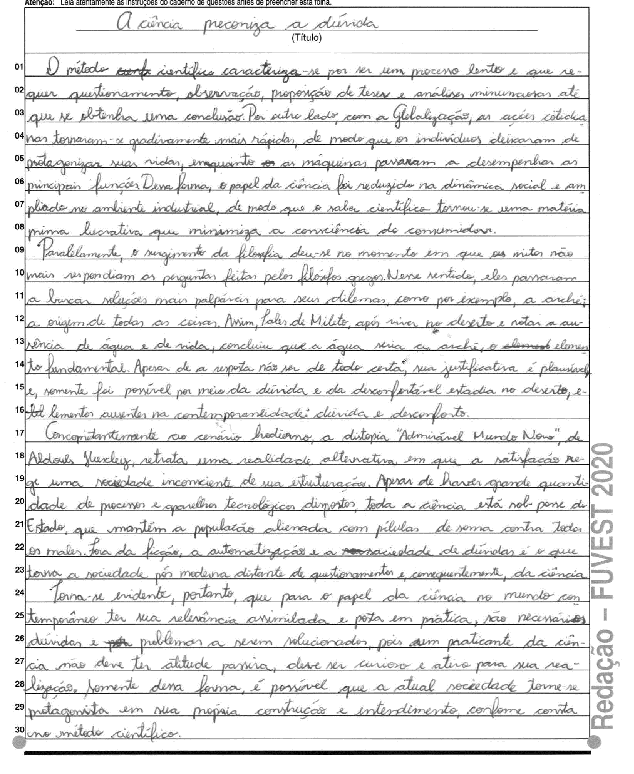 Atenção: Leia atentamente as instruções do caderno de questões antes de preencher esta folha.
A ciência preconiza a dúvida
(Título)
01 O método científico caracteriza-se por ser um processo lento e que re-
02 quer questionamento, observação, proposição de teses e análises minunciosas até
03 que se obtenha uma conclusão. Por outro lado, com a Globalização, as ações cotidia
04 nas tornaram-se gradivamente mais rápidas, de modo que os indivíduos deixaram de
05 protagonizar suas vidas, enquanto as máquinas passaram a desempenhar as
06 principais funções. Dessa forma, o papel da ciência foi reduzido na dinâmica social e am
07 pliado no ambiente industrial, de modo que o saber científico tornou-se uma matéria
08 prima lucrativa que minimiza a consciência do consumidor.
09 Paralelamente, o surgimento da filosofia deu-se no momento em que os mitos não
10 mais respondiam as perguntas feitas pelos filósofos gregos. Nesse sentido, eles passaram
11 a buscar soluções mais palpáveis para seus dilemas, como por exemplo, a arché:
12 a origem de todas as coisas. Assim, Tales de Mileto, após viver no deserto e notar a au-
13 sência de água e de vida, concluiu que a água seria a arché, o elemen
14 to fundamental. Apesar de a resposta não ser de todo certa, sua justificativa é plausível
15 e, somente foi possível por meio da dúvida e da desconfortável estadia no deserto, e-
16 lementos ausentes na contemporaneidade: dúvida e desconforto.
17 Concomitantemente ao cenário hodierno, a distopia "Admirável Mundo Novo", de
18 Aldous Huxley, retrata uma realidade alternativa em que a satisfação re-
19 ge uma sociedade inconsciente de sua estruturação. Apesar de haver grande quanti
20 dade de processos e aparelhos tecnológicos dispostos, toda a ciência está sob posse do
21 Estado, que mantém a população alienada com pílulas de soma contra todos
22 os males. Fora da ficção, a automatização e a saciedade de dúvidas é o que
23 torna a sociedade pós moderna distante de questionamentos e, consequentemente, da ciência
24 Torna-se evidente, portanto, que para o papel da ciência no mundo con
25 temporâneo ter sua relevância assimilada e posta em prática, são necessários
26 dúvidas e problemas a serem solucionados, pois um praticante da ciên-
27 cia não deve ter atitude passiva, deve ser curioso e ativo para sua rea-
28 lização. Somente dessa forma, é possível que a atual sociedade torne-se
29 protagonista em sua própria construção e entendimento, conforme consta
30 no método científico.
Redação – FUVEST 2020